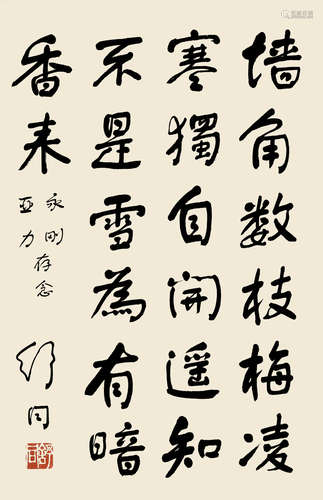 墙角数枝梅凌
寒獨自開遥知
不是雪為有暗
香来
永刚存念
亚力
舒同